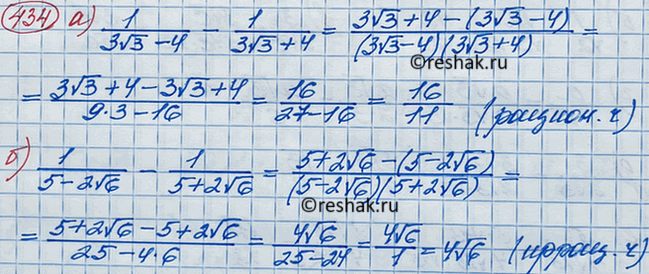 434 а) 1/(3√3−4) − 1/(3√3+4) = (3√3+4−(3√3−4))/((3√3−4)(3√3+4)) =
©reshak.ru
= (3√3+4−3√3+4)/(9·3−16) = 16/(27−16) = 16/11 (рацион. ч)
б) 1/(5−2√6) − 1/(5+2√6) = (5+2√6−(5−2√6))/((5−2√6)(5+2√6)) =
©reshak.ru
= (5+2√6−5+2√6)/(25−4·6) = 4√6/(25−24) = 4√6/1 = 4√6 (иррац. ч)